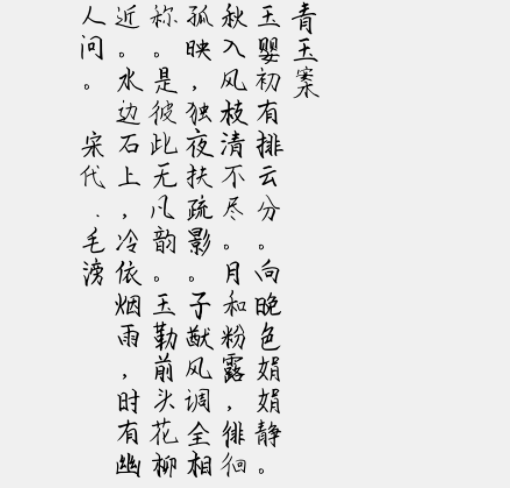 青玉案
玉婴初有排云分。向晚色娟娟静。
秋入风枝清不尽。月和粉露，徘徊
孤映，独夜扶疏影。子猷风调全相
称。是彼此无凡韵。玉勒前头花柳
近。水边石上，冷依烟雨，时有幽
人问。 宋代．毛滂